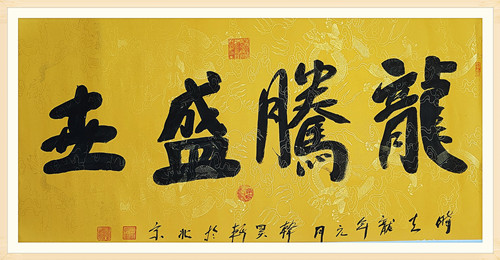 龍騰盛世
時在龍年元月韓軒於北京